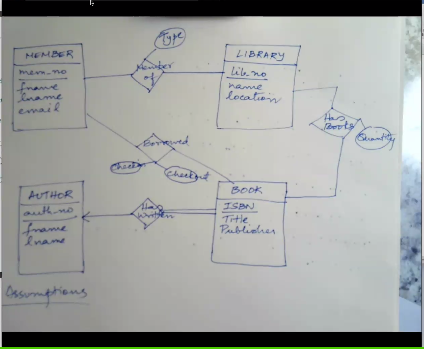 Type
MEMBER
mem.no
fname
lname
email
Member
of
LIBRARY
lib.no
name
location
Has
Books
Quantity
Borrowed
Checkout
AUTHOR
auth.no
fname
lname
Has
Written
BOOK
ISBN
Title
Publisher
Assumptions